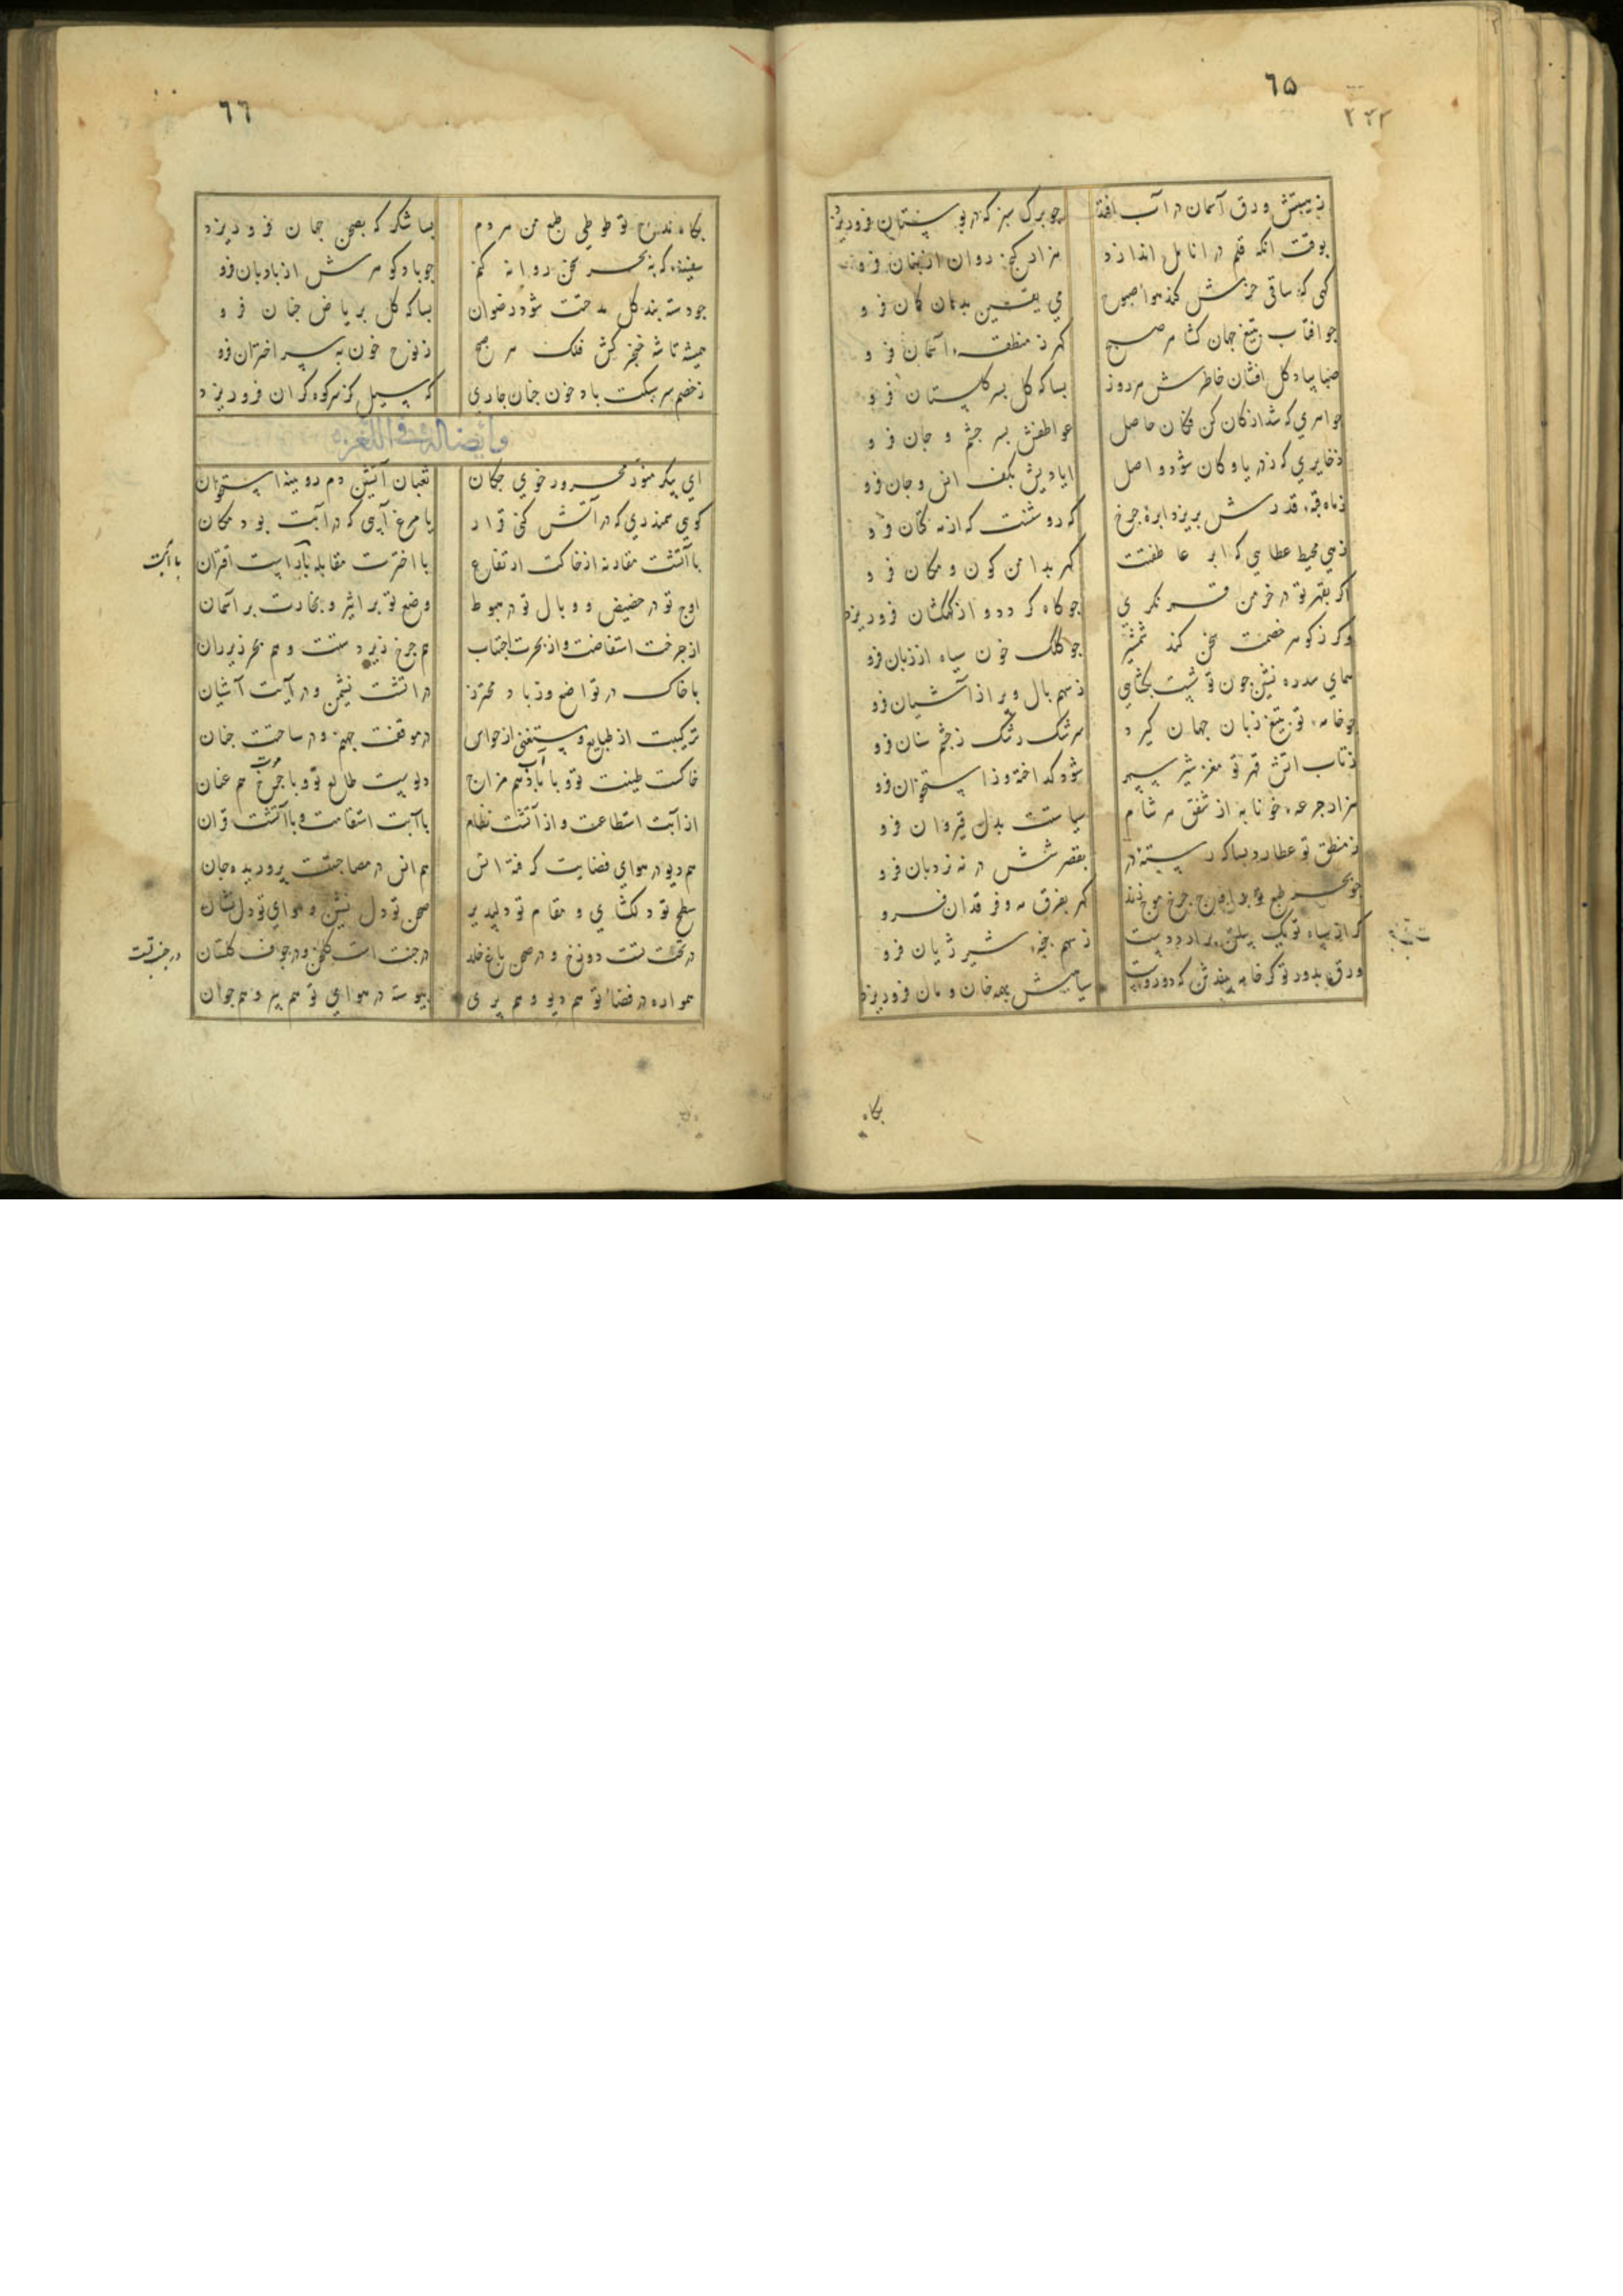 ٦۵
٢٤٢
ز هیبتش ورق آسمان در آب افتد چو برک سبز که در بوستان فروریزد
بوقت آنکه قلم در انامل اندازد هزار کنج روان از بنان فرو
کهی که ساقی حزمش کند هوا صبوح می یقین بدهان کمان فرو
جو افتاب بتیغ جهان کشا هر صبح کهر ز منطقه آسمان فرو
صبا بیاد کل افشان خاطرش هر روز بسا که کل بسر کلستان فرو
جواهری که شد از کان کن فکان حاصل عواطفش بسر جشم و جان فرو
ذخایری که ز دریا و کان شود واصل ایادیش بکف انس و جان فرو
ز ماه قبه قدرش بریزد ابره جرخ که روشنست که از مه کتان فرو
زهی محیط عطایی که ابر عاطفتت کهر بدامن کون و مکان فرو
اکر بقهر تو در خرمن قمر نکری جو کاه کردد و از کهکشان فروریزد
وکر ز کوهر خصمت سخن کند شمشیر جو کلک خون سیاه از زبان فرو
همای سدره نشین جون تو شست بکشایی ز سهم بال و پر از آشیان فرو
جو خامه تو بتیغ زبان جهان کیرد سرشک رشک ز جشم سنان فرو
ز تاب اتش قهر تو مغز شیر سپهر شود کداخته وز استخوان فرو
هزار جرعه خونابه از شفق هر شام سیاستت بدل قیروان فرو
ز منطق تو عطارد بسا که رسته در بقصر شش در نه نردبان فرو
جو بحر طبع تو بر اوج جرخ موج زند کهر بفرق مه و فرقدان فرو
کر از سپاه تو یک پیلتن برارد دست ز سهم پنجه شیر ژیان فرو
ورق بدور تو کر خامه بیندش که دوروست سیاهیش بهمه خان و مان فروریزد
بکاه
٦٦
بکاه مدح تو طوطی طبع من هر دم بسا شکر که بصحن جهان فروریزد
سفینه که به بحر سخن روانه کنم جو باد کوهرش از بادبان فرو
جو دسته بند کل مدحتت شود رضوان بسا که کل بریاض جنان فرو
همیشه تا شه خنجر کش فلک هر صبح ز نوح خون به سپر اختران فرو
ز خصم سر سبکت باد خون جنان جاری که سیل کز سر کوه کران فروریزد
وایضا له فی اللغز
ای پیکر منور محرور خوی جکان ثعبان آتشین دم رویینه استخوان
کویی سمندری که در آتش کنی قرار یا مرغ آبیی که در آبت بود مکان
با آتشت مقارنه از خاکت ارتفاع با اخترت مقابله با آبست اقتران
با آبت
اوج تو در حضیض و وبال تو در هبوط وضع تو بر اثیر و بخارت بر آسمان
از جرخت استفاضت و از بحرت اجتناب هم جرخ زیردستت و هم بحر زیر ران
با خاک در تواضع وز باد محترز در اتشت نشیمن و در آبت آشیان
ترکیبت از طبایع و مستغنی از حواس در موقفت جهنم و در ساحتت جنان
خاکست طینت تو و با آب هم مزاج دلوست طالع تو و با جرخ هم عنان
از آبت استطاعت و از آتشت نظام با آبت استقامت و با آتشت قران
هم دیو در هوای فضایت کرفته انس هم انس در مصاحبتت پروریده جان
سطح تو دلکشای و مقام تو دلپذیر صحن تو دل نشین و هوای تو دل نشان
در تحت تست دوزخ و در صحن باغ خلد در جنت است کلخن و در جوف کلستان
در جنب تست
همواره در فضای تو هم دیو و هم پری پیوسته در هوای تو هم پیر و هم جوان